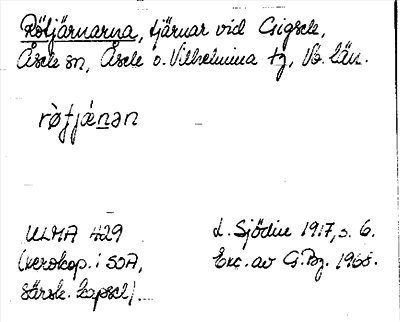 Rötjärnarna, tjärnar vid Gigsele,
Åsele sn, Åsele o. Vilhelmina tg, Vb. län.
ròtjǽnən
ULMA 429
(xerokop. i SOA,
särsk. kapsel) ...
L. Sjödin 1917, s. 6.
Exc. av G. Bg. 1968.